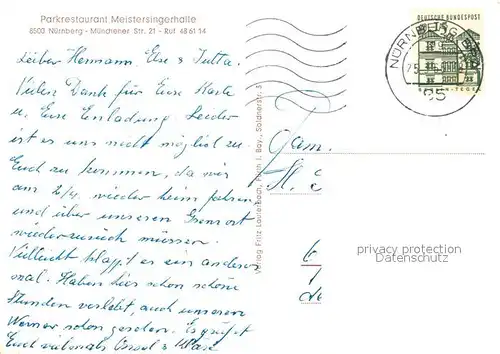 Parkrestaurant Meistersingerhalle
8500 Nürnberg - Münchener Str. 21 - Ruf 48 61 14
Lieber Hermann, Else & Jutta.
Vielen Dank für Eure Karte
u. Eure Einladung. Leider
ist es uns nicht möglich zu
Euch zu kommen, da wir
am 2/4. wieder heim fahren,
und über unseren Grenzort
wieder zurück müssen.
Vielleicht klappt es ein anderes
mal. Haben hier schon schöne
Stunden verlebt, auch unseren
Werner schon gesehen. Es grüßt
Euch vielmals
Verlag Fritz Lauterbach, Fürth i. Bay., Soldnerstr. 3
Fam.
DEUTSCHE BUNDESPOST
NÜRNBERG
85
BERLIN-TEGEL
privacy protection
Datenschutz